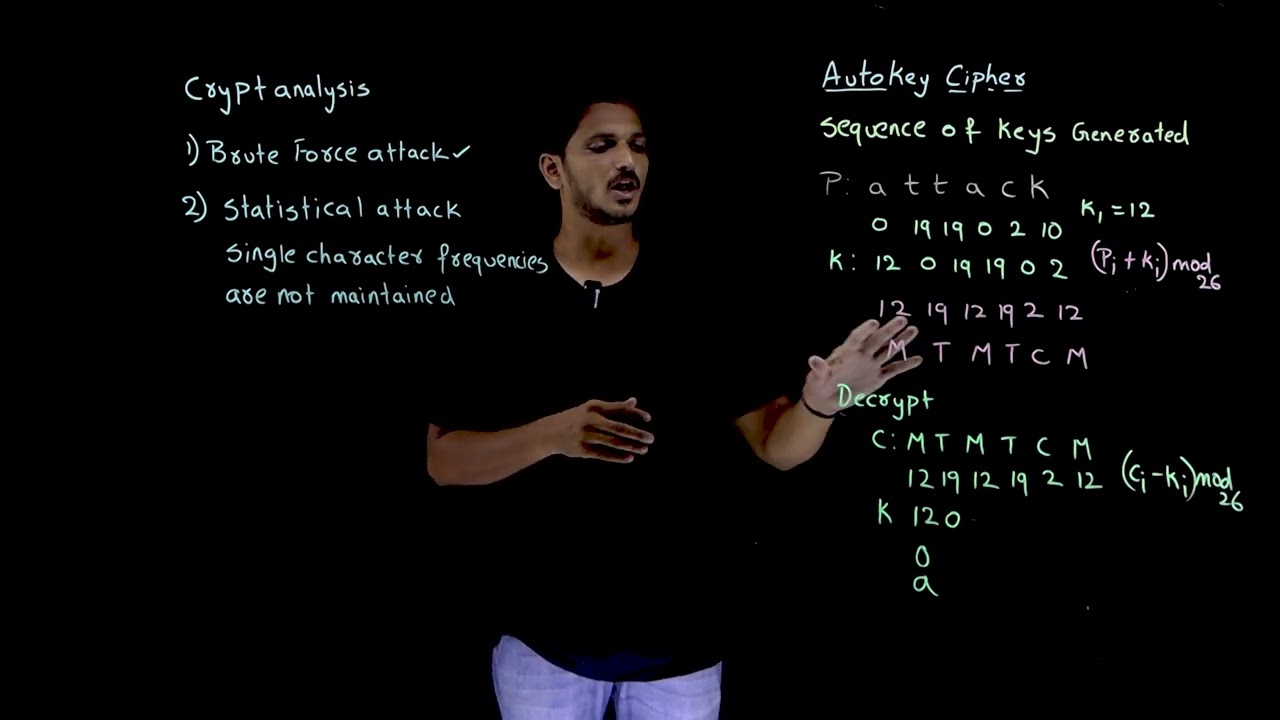 Cryptanalysis
1) Brute Force attack ✓
2) Statistical attack
single character frequencies
are not maintained
AutoKey Cipher
Sequence of Keys Generated
P: a t t a c k
0 19 19 0 2 10 K₁ = 12
K: 12 0 19 19 0 2 (Pᵢ + Kᵢ) mod 26
12 19 12 19 2 12
M T M T C M
Decrypt
C: M T M T C M
12 19 12 19 2 12 (Cᵢ - Kᵢ) mod 26
K 12 0
0
a